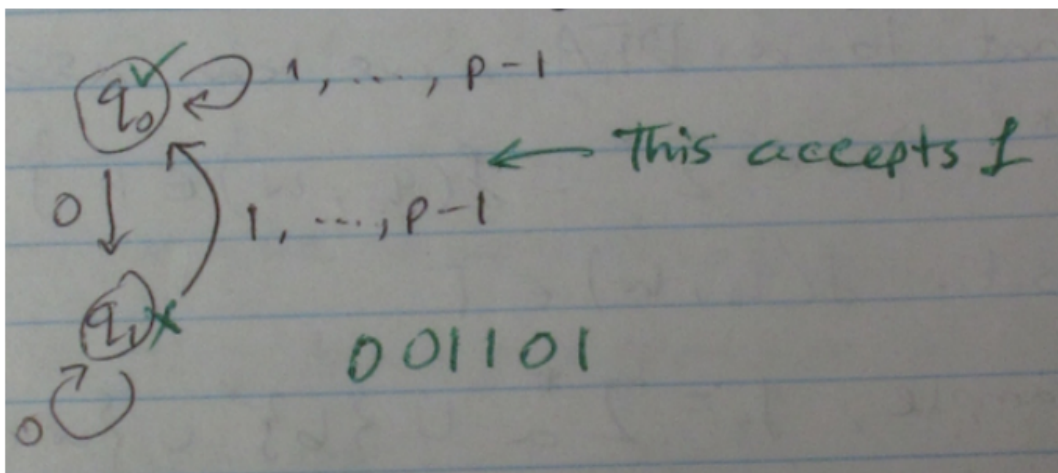 q₀ ✓ 1, ..., p-1
← This accepts 1
0 1, ..., p-1
q₁ ×
001101
0